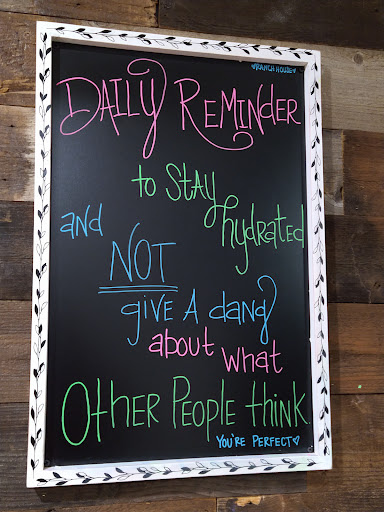 ♡RANCH HOUSE♡
DAILY REMINDER
to StAY
hydrated
and
NOT
give A dang
about what
OtHER PEOPLE tHiNK
YOU'RE PERFECT♡